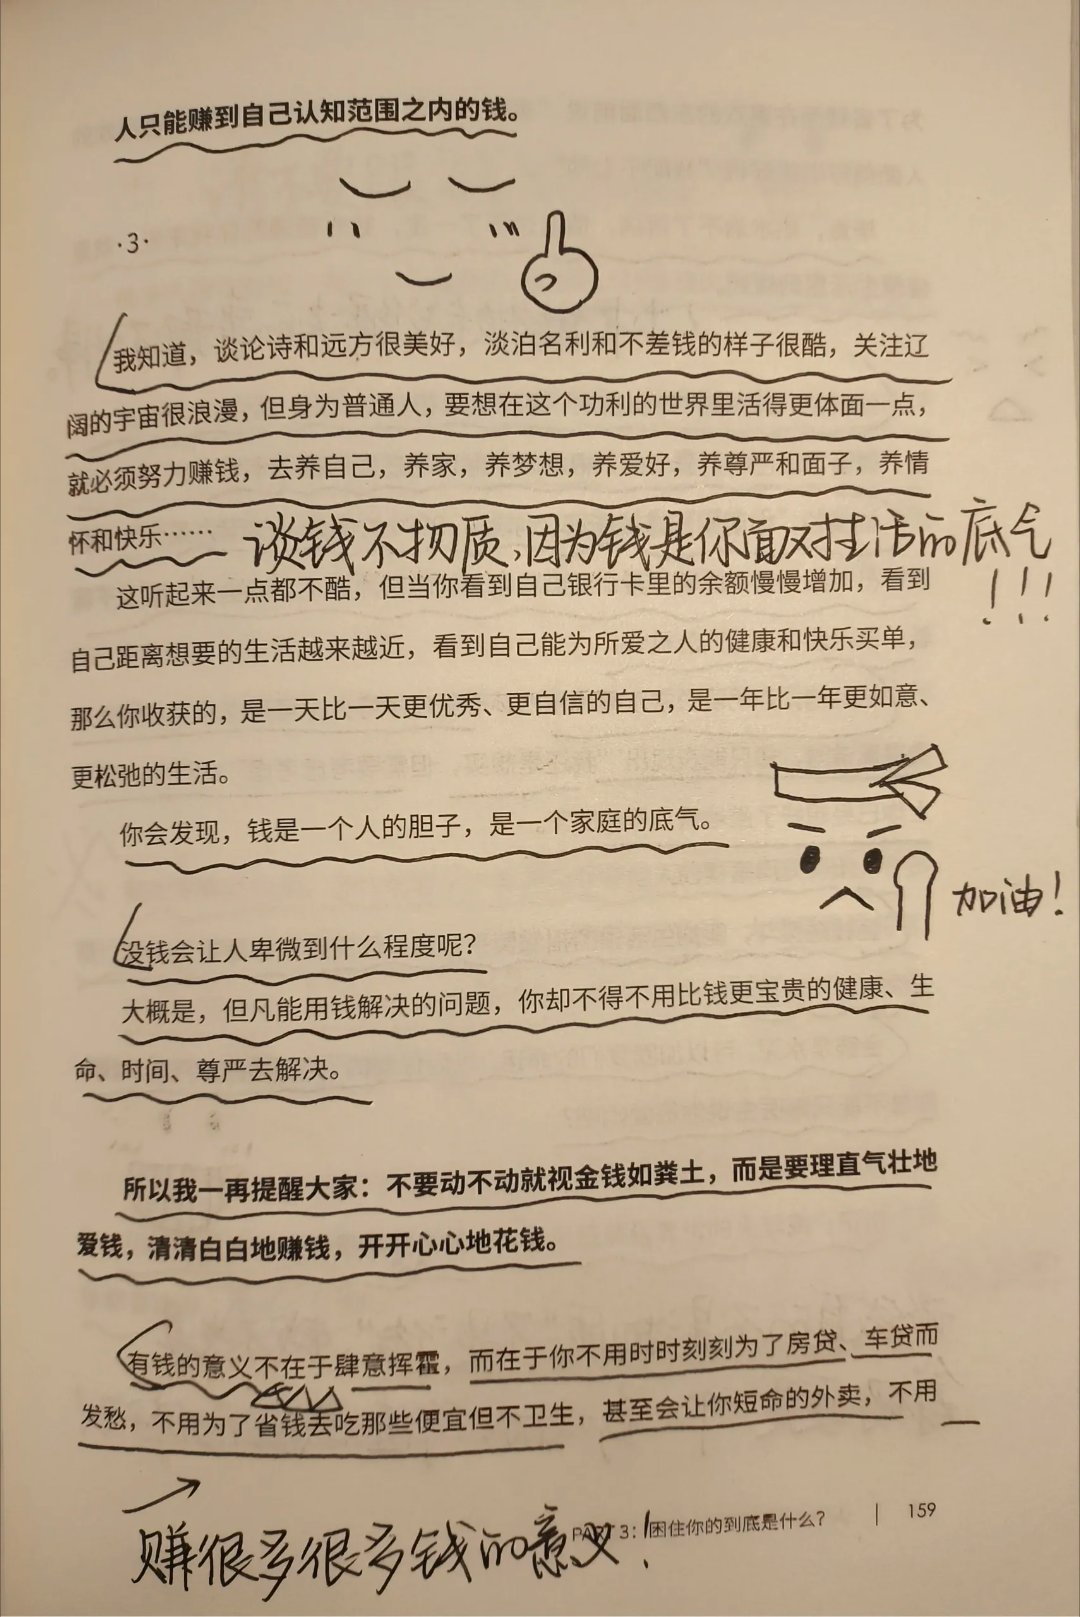 人只能赚到自己认知范围之内的钱。
·3·
我知道，谈论诗和远方很美好，淡泊名利和不差钱的样子很酷，关注辽
阔的宇宙很浪漫，但身为普通人，要想在这个功利的世界里活得更体面一点，
就必须努力赚钱，去养自己，养家，养梦想，养爱好，养尊严和面子，养情
怀和快乐……
谈钱不物质、因为钱是你面对生活的底气!!!
这听起来一点都不酷，但当你看到自己银行卡里的余额慢慢增加，看到
自己距离想要的生活越来越近，看到自己能为所爱之人的健康和快乐买单，
那么你收获的，是一天比一天更优秀、更自信的自己，是一年比一年更如意、
更松弛的生活。
你会发现，钱是一个人的胆子，是一个家庭的底气。
加油！
没钱会让人卑微到什么程度呢？
大概是，但凡能用钱解决的问题，你却不得不用比钱更宝贵的健康、生
命、时间、尊严去解决。
所以我一再提醒大家：不要动不动就视金钱如粪土，而是要理直气壮地
爱钱，清清白白地赚钱，开开心心地花钱。
有钱的意义不在于肆意挥霍，而在于你不用时时刻刻为了房贷、车贷而
发愁，不用为了省钱去吃那些便宜但不卫生，甚至会让你短命的外卖，不用
赚很多很多钱的意义！
PART 3：困住你的到底是什么？ | 159